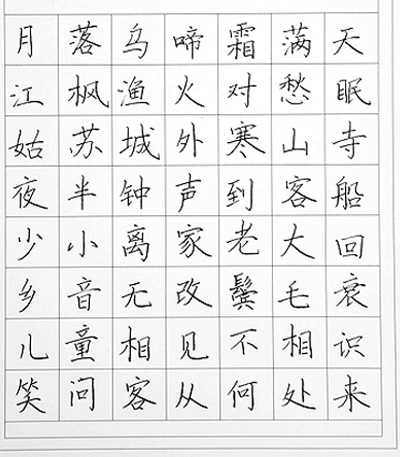 月落乌啼霜满天
江枫渔火对愁眠
姑苏城外寒山寺
夜半钟声到客船
少小离家老大回
乡音无改鬓毛衰
儿童相见不相识
笑问客从何处来